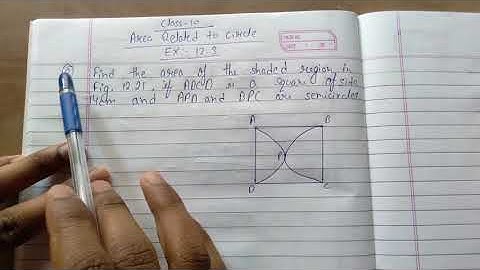 Class-10
Area Related to Circle
Ex:- 12.3
Find the area of the shaded region in
Fig. 12.21, if ABCD is a square of side
14cm and APD and BPC are semicircles
A B
P
D C